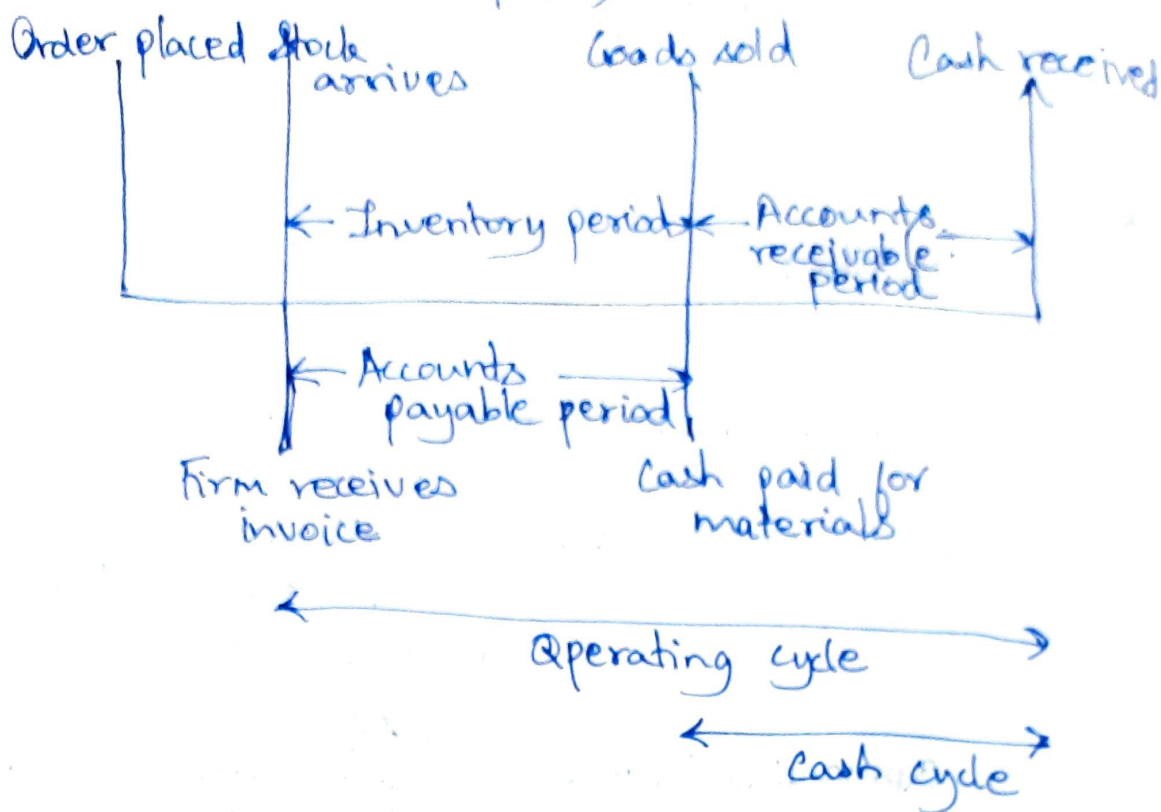 Order placed Stock arrives
Goods sold
Cash received
Inventory period
Accounts receivable period
Accounts payable period
Firm receives invoice
Cash paid for materials
Operating cycle
Cash cycle